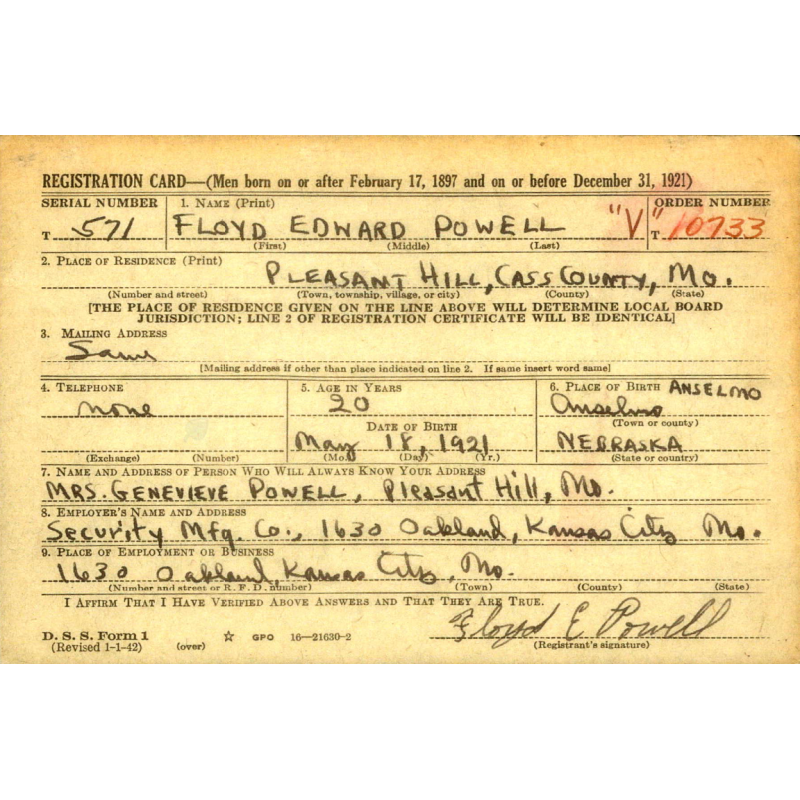 REGISTRATION CARD—(Men born on or after February 17, 1897 and on or before December 31, 1921)
SERIAL NUMBER 1. NAME (Print) ORDER NUMBER
T 571 FLOYD EDWARD POWELL "V" T 10733
(First) (Middle) (Last)
2. PLACE OF RESIDENCE (Print)
PLEASANT HILL, CASS COUNTY, MO.
(Number and street) (Town, township, village, or city) (County) (State)
[THE PLACE OF RESIDENCE GIVEN ON THE LINE ABOVE WILL DETERMINE LOCAL BOARD
JURISDICTION; LINE 2 OF REGISTRATION CERTIFICATE WILL BE IDENTICAL]
3. MAILING ADDRESS
Same
[Mailing address if other than place indicated on line 2. If same insert word same]
4. TELEPHONE 5. AGE IN YEARS 6. PLACE OF BIRTH ANSELMO
none 20 Anselmo
(Town or county)
DATE OF BIRTH
May 18, 1921 NEBRASKA
(Exchange) (Number) (Mo.) (Day) (Yr.) (State or country)
7. NAME AND ADDRESS OF PERSON WHO WILL ALWAYS KNOW YOUR ADDRESS
MRS. GENEVIEVE POWELL, Pleasant Hill, Mo.
8. EMPLOYER'S NAME AND ADDRESS
Security Mfg. Co., 1630 Oakland, Kansas City Mo.
9. PLACE OF EMPLOYMENT OR BUSINESS
1630 Oakland, Kansas City, Mo.
(Number and street or R. F. D. number) (Town) (County) (State)
I AFFIRM THAT I HAVE VERIFIED ABOVE ANSWERS AND THAT THEY ARE TRUE.
Floyd E Powell
D. S. S. Form 1 ☆ GPO 16—21630-2
(Revised 1-1-42) (over) (Registrant's signature)